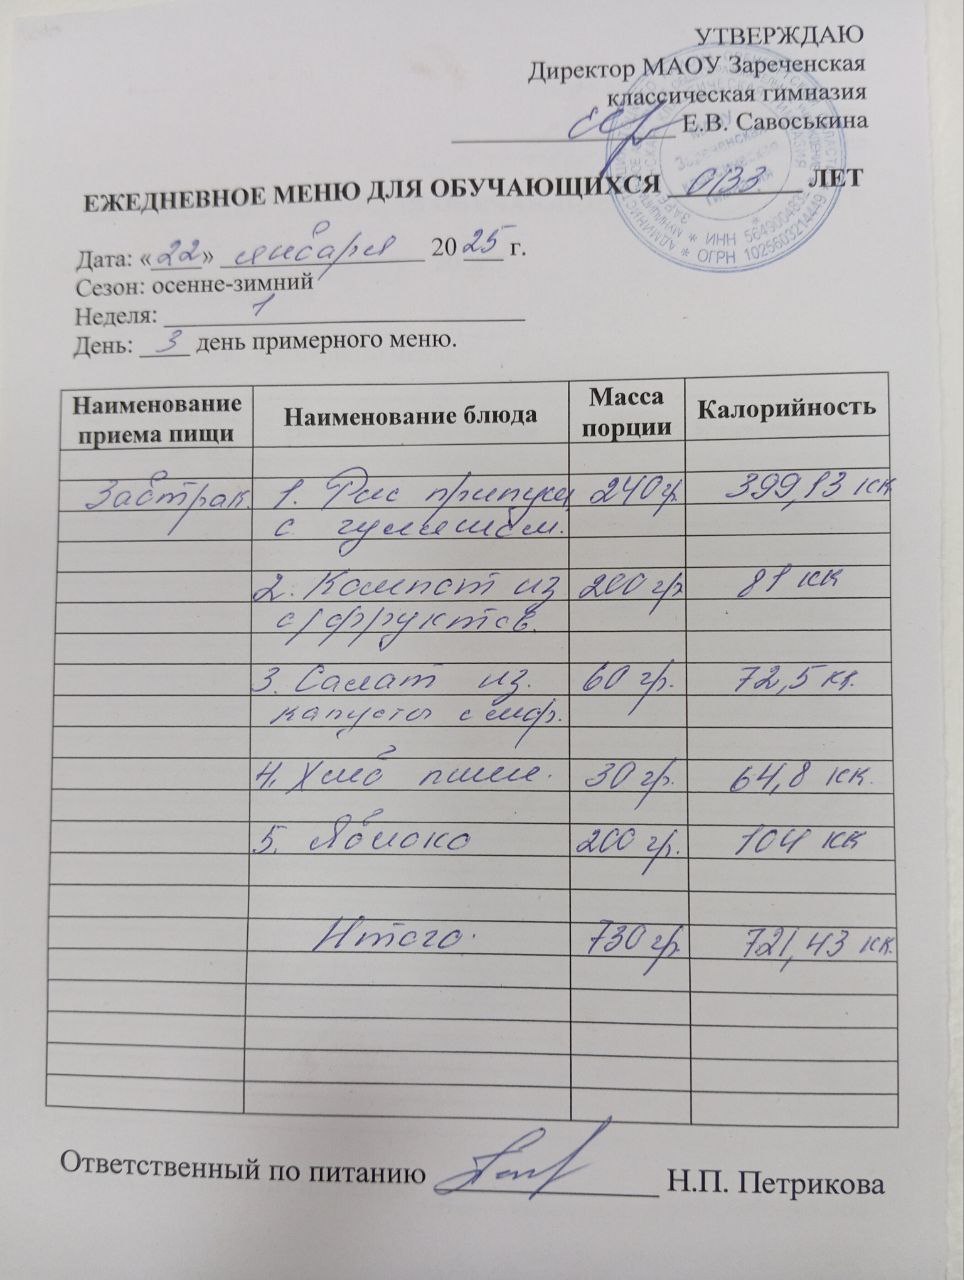 УТВЕРЖДАЮ
Директор МАОУ Зареченская
классическая гимназия
Е.В. Савоськина
ЕЖЕДНЕВНОЕ МЕНЮ ДЛЯ ОБУЧАЮЩИХСЯ ОВЗ ЛЕТ
Дата: «22» января 2025 г.
Сезон: осенне-зимний
Неделя: 1
День: 3 день примерного меню.
Наименование приема пищи Наименование блюда Масса порции Калорийность
Завтрак. 1. Рис припущ 240 гр 399,13 кк
с гуляшом.
2. Компот из 200 гр 81 кк
с/фруктов.
3. Салат из. 60 гр. 72,5 кк.
капусты с мор.
4. Хлеб пшен. 30 гр. 64,8 кк.
5. Яблоко 200 гр. 104 кк
Итого. 730 гр. 721,43 кк.
Ответственный по питанию Н.П. Петрикова
ИНН
ОГРН 1025603214449